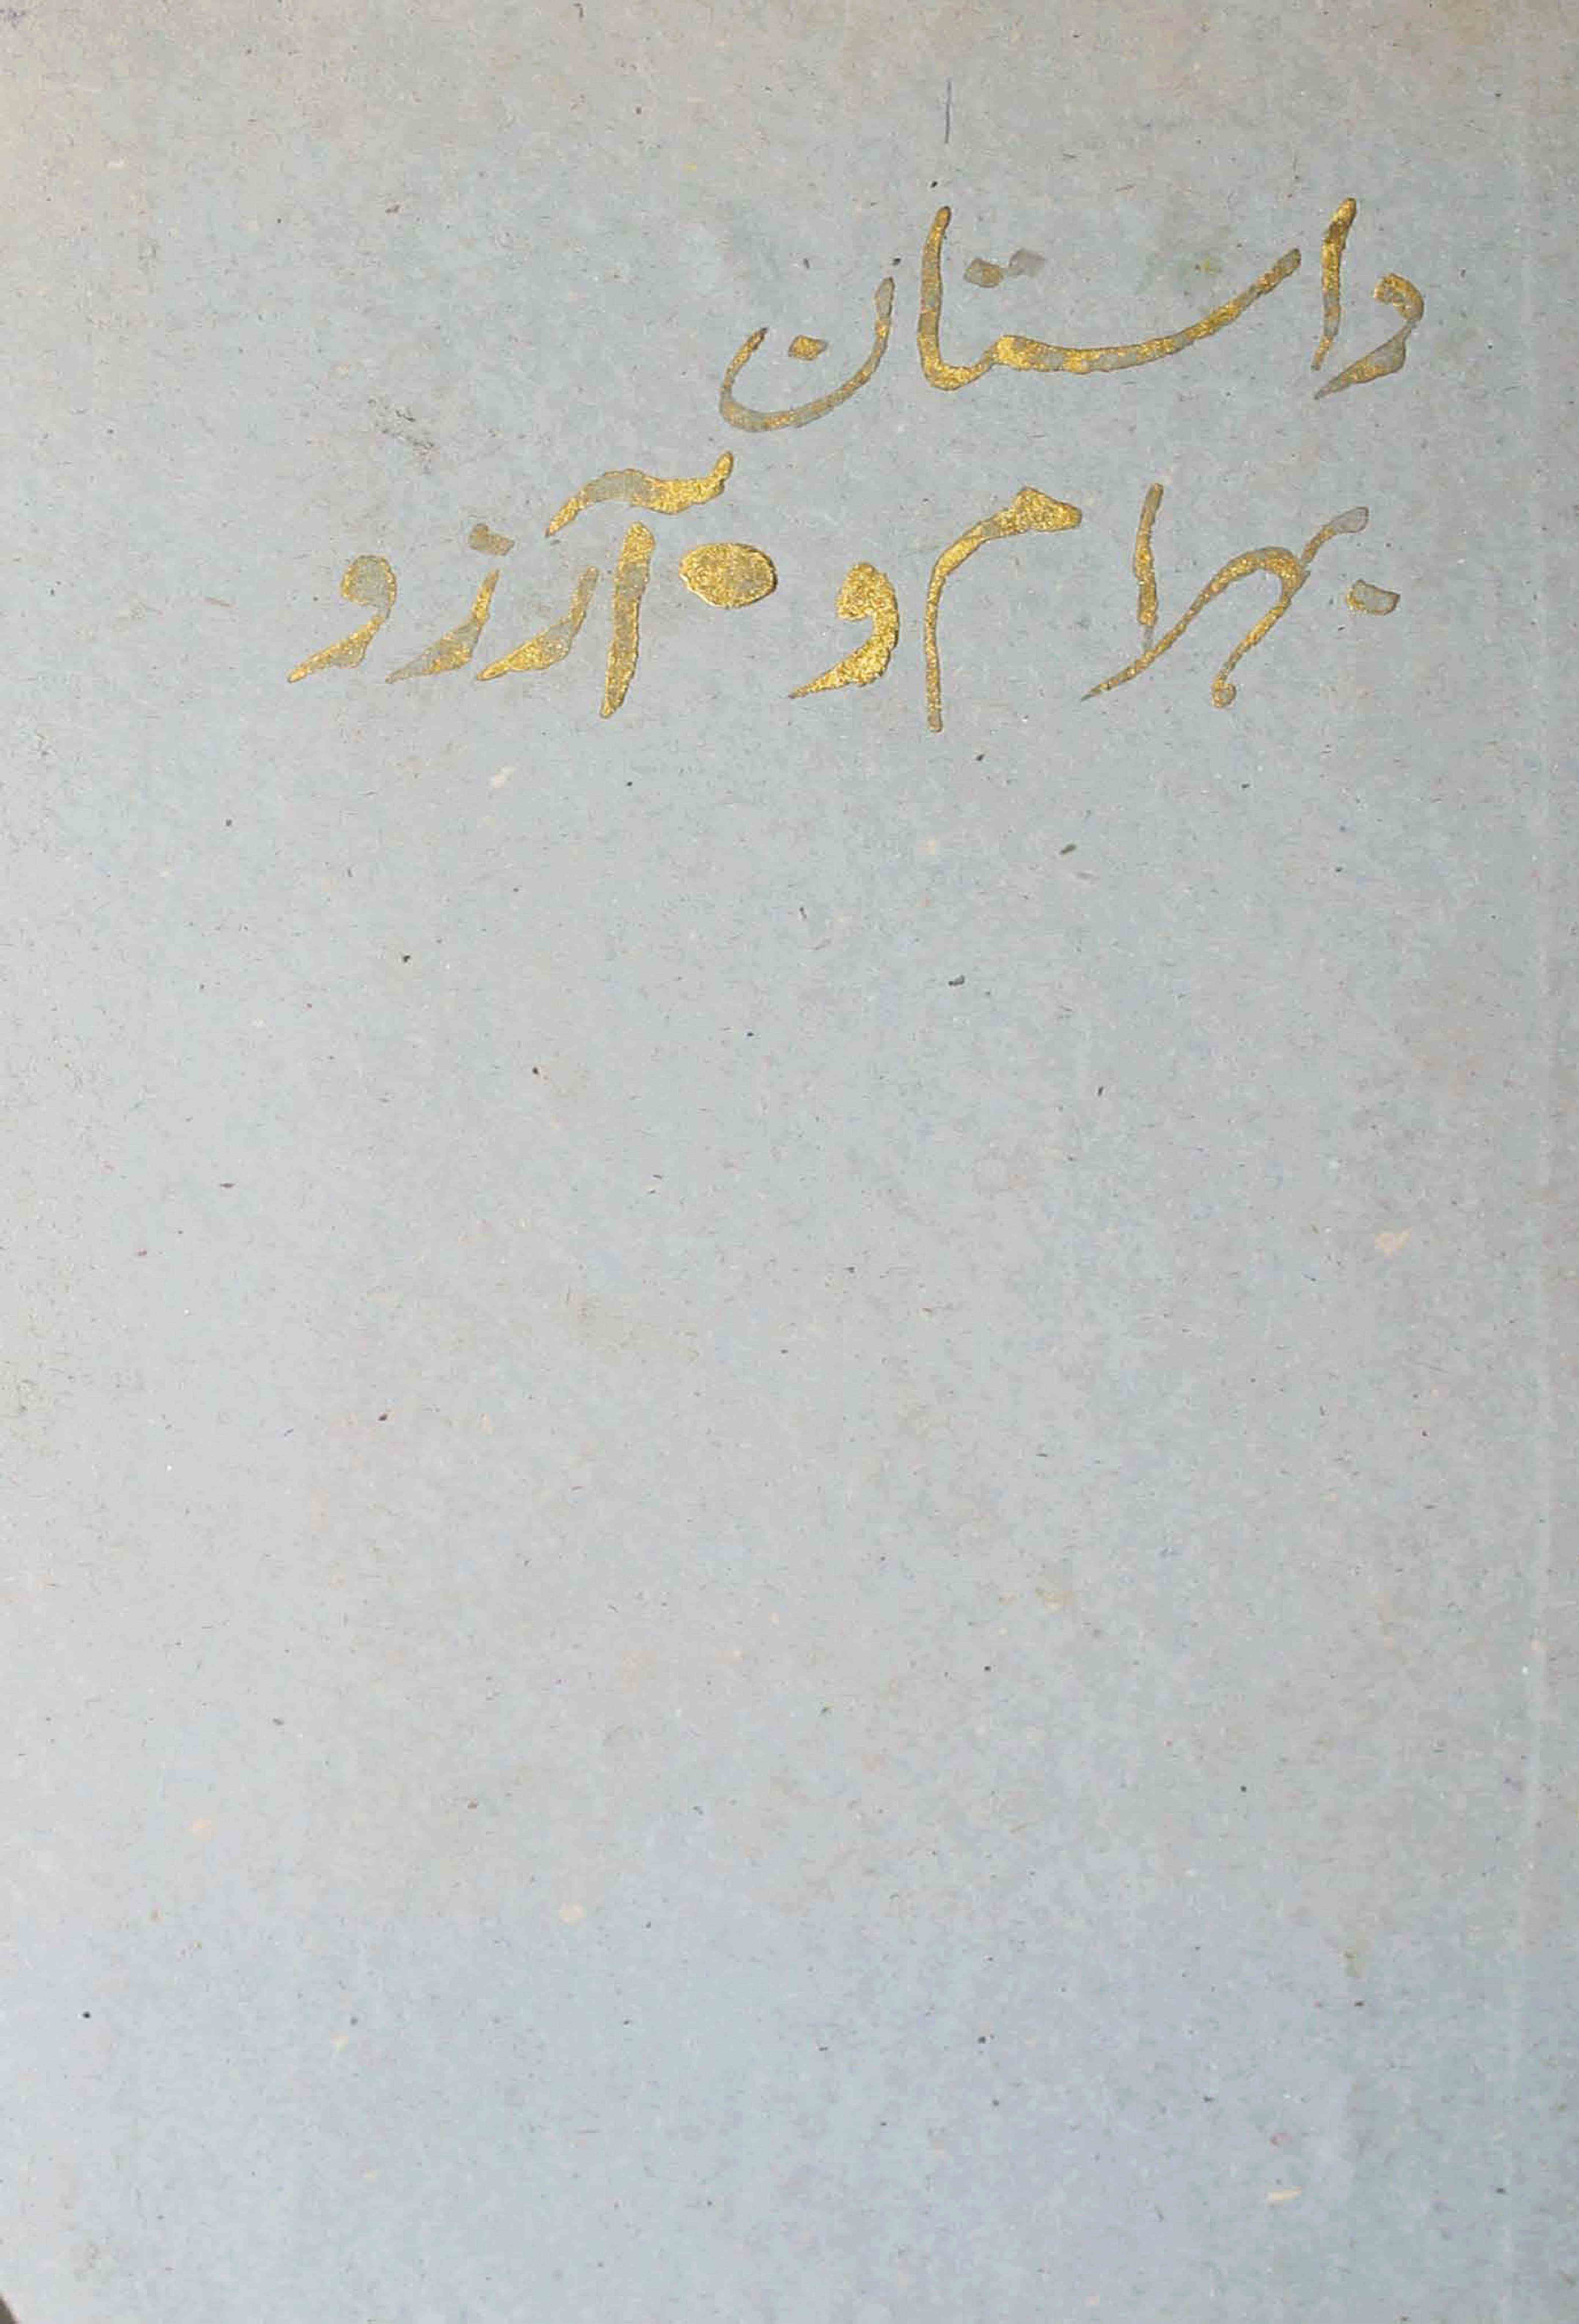 داستان
بهرام و آرزو